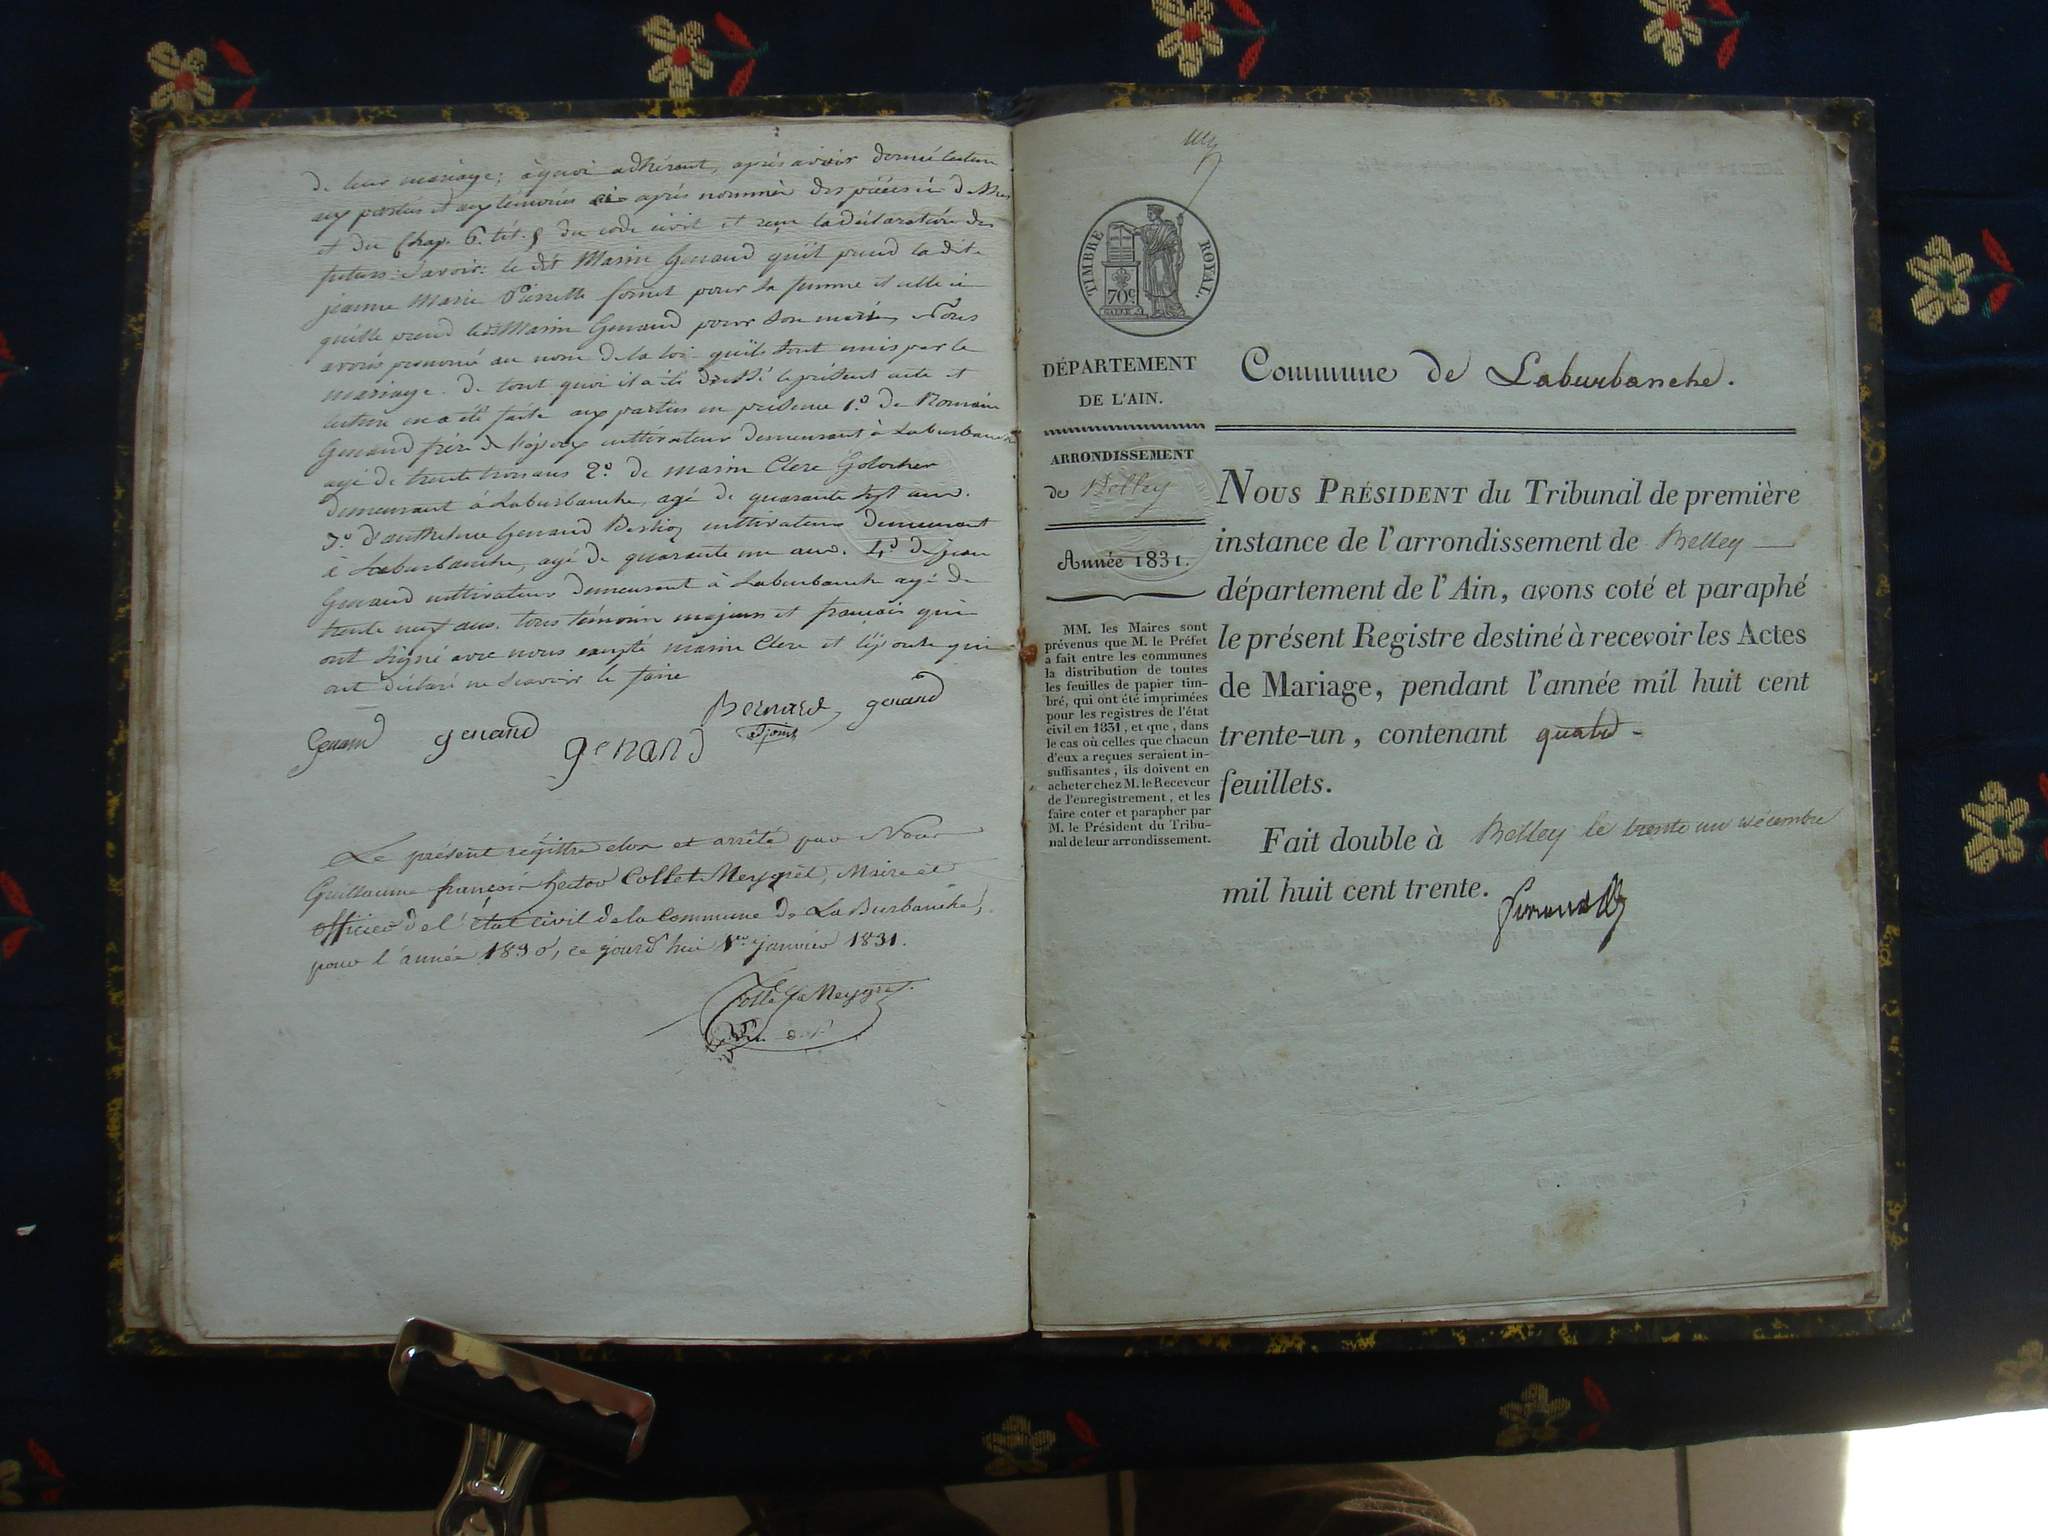 de leur mariage; à quoi adhérant, après avoir donné lecture
aux parties et aux témoins ci-après nommés des pièces ci dessus
et du Chap. 6. tit. 5 du code civil et reçu la déclaration des
futurs: savoir: le dit Marin Genand qu'il prend la dite
jeanne Marie Pierrette fornet pour sa femme et celle ci
qu'elle prend led. Marin Genand pour son mari, Nous
avons prononcé au nom de la loi qu'ils sont unis par le
mariage. de tout quoi il a été dressé le présent acte et
lecture en a été faite aux parties en présence 1.o de Romain
Genand frère de l'époux cultivateur demeurant à Laburbanche
agé de trente trois ans 2.o de marin Clerc Golochet
demeurant à Laburbanche, agé de quarante sept ans.
3.o d'anthelme Genand cultivateur demeurant
à Laburbanche, agé de quarante un ans. 4.o de jean
Genand cultivateur demeurant à Laburbanche agé de
trente neuf ans. tous témoins majeurs et français qui
ont signé avec nous excepté marin Clerc et l'épouse qui
ont déclaré ne scavoir le faire
Bernard genand
adjoint
Genand genand genand
Le présent régistre clos et arrêté par Nous
Guillaume françois hector Collet Meygret, Maire et
officier de l'état civil de la Commune de La Burbanche,
pour l'année 1830, ce jourd'hui 1er janvier 1831.
Collet Meygret
TIMBRE ROYAL.
70c
DÉPARTEMENT
DE L'AIN.
ARRONDISSEMENT
de Belley
Année 1831.
MM. les Maires sont
prévenus que M. le Préfet
a fait entre les communes
la distribution de toutes
les feuilles de papier tim-
bré, qui ont été imprimées
pour les registres de l'état
civil en 1831, et que, dans
le cas où celles que chacun
d'eux a reçues seraient in-
suffisantes, ils doivent en
acheter chez M. le Receveur
de l'enregistrement, et les
faire coter et parapher par
M. le Président du Tribu-
nal de leur arrondissement.
Commune de Laburbanche.
NOUS PRÉSIDENT du Tribunal de première
instance de l'arrondissement de Belley
département de l'Ain, avons coté et paraphé
le présent Registre destiné à recevoir les Actes
de Mariage, pendant l'année mil huit cent
trente-un, contenant quatre
feuillets.
Fait double à Belley le trente un décembre
mil huit cent trente.